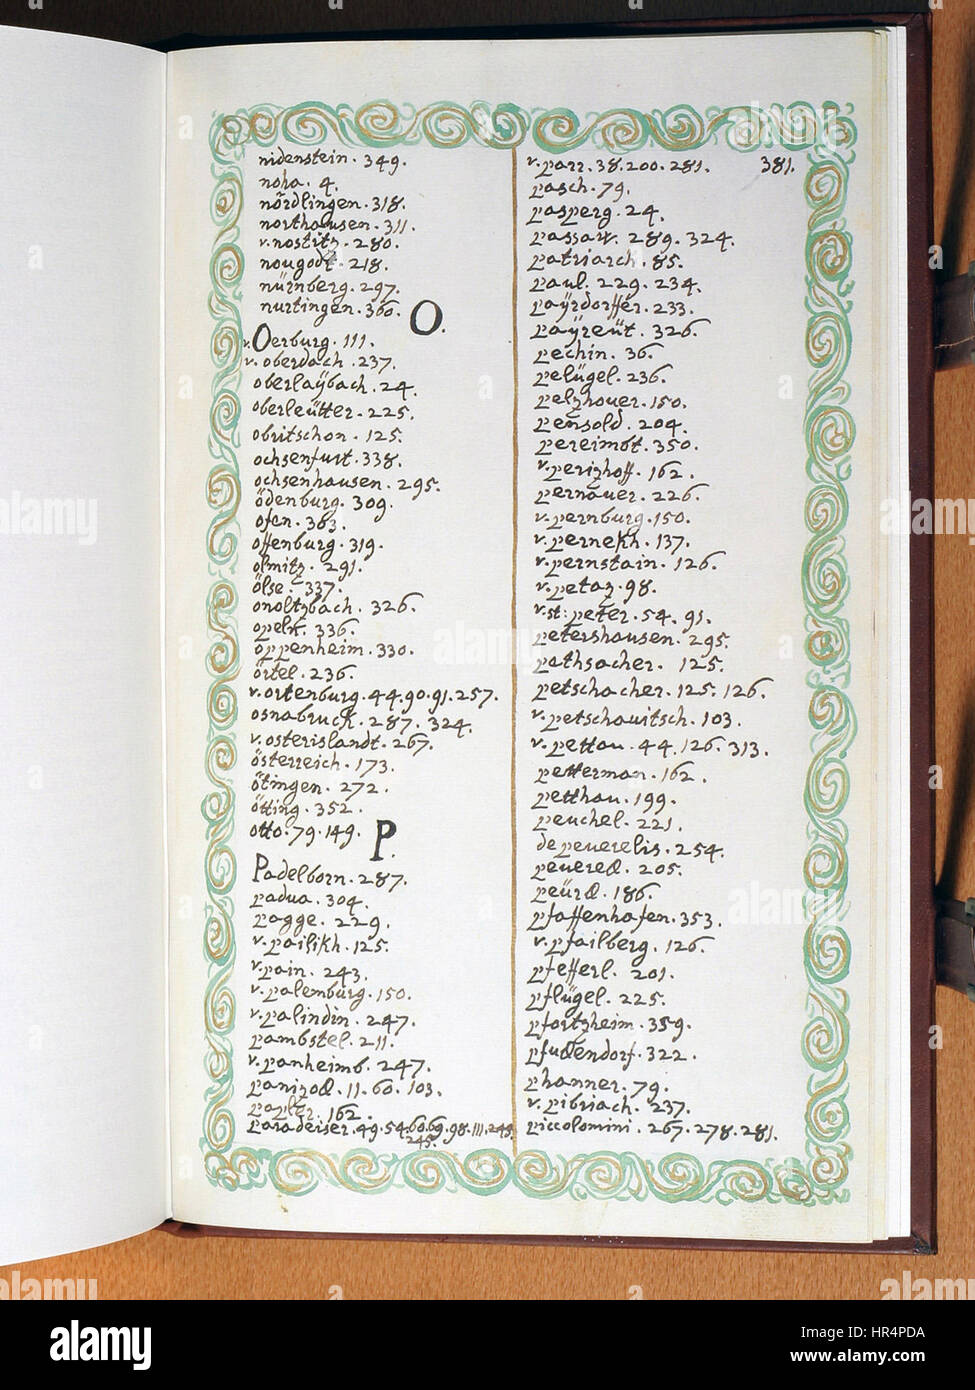 nidenstein. 349.
noha. 4.
nördlingen. 318.
northausen. 311.
v. nostitz. 280.
218.
nürnberg. 297.
nurtingen. 360.
O.
v. Oerburg. 111.
v. oberdach. 237.
oberlaÿbach. 24.
oberleütter. 225.
obritschon. 125.
ochsenfurt. 338.
ochsenhausen. 295.
ödenburg. 309.
ofen. 363.
offenburg. 319.
olmitz. 291.
ölse. 337.
onoltzbach. 326.
opeln. 336.
oppenheim. 330.
örtel. 236.
v. ortenburg. 44. 90. 91. 257.
osnabruck. 287. 324.
v. osterislandt. 267.
österreich. 173.
ötingen. 272.
ötting. 352.
otto. 79. 149.
P.
Padelborn. 287.
padua. 304.
pagge. 229.
v. pailikh. 125.
v. pain. 243.
v. palemburg. 150.
v. palindin. 247.
pambstel. 211.
v. panheimb. 247.
panizod. 11. 60. 103.
papler. 162.
paradeiser. 49. 54. 60. 69. 98. 111. 243.
245.
381.
v. parr. 38. 200. 281.
pasch. 79.
pasperg. 24.
passaw. 289. 324.
patriarch. 85.
paul. 229. 234.
paÿrdorffer. 233.
paÿreüt. 326.
pechin. 36.
pelügel. 236.
pelzhouer. 150.
pensold. 204.
pereimbt. 350.
v. perizhoff. 162.
pernauer. 226.
v. pernburg. 150.
v. pernekh. 137.
v. pernstain. 126.
v. petaz. 98.
v. st: peter. 54. 91.
petershausen. 295.
pethsacher. 125.
petschacher. 125. 126.
v. petschauitsch. 103.
v. pettau. 44. 126. 313.
petterman. 162.
petthau. 199.
peuchel. 221.
de peuerelis. 254.
peuered. 205.
peürd. 186.
pfaffenhafen. 353.
v. pfailberg. 126.
pfefferl. 201.
pflügel. 225.
pfortzheim. 359.
pfudendorf. 322.
phanner. 79.
v. pibriach. 237.
piccolomini. 267. 278. 281.
alamy
Image ID: HR4PDA
www.alamy.com